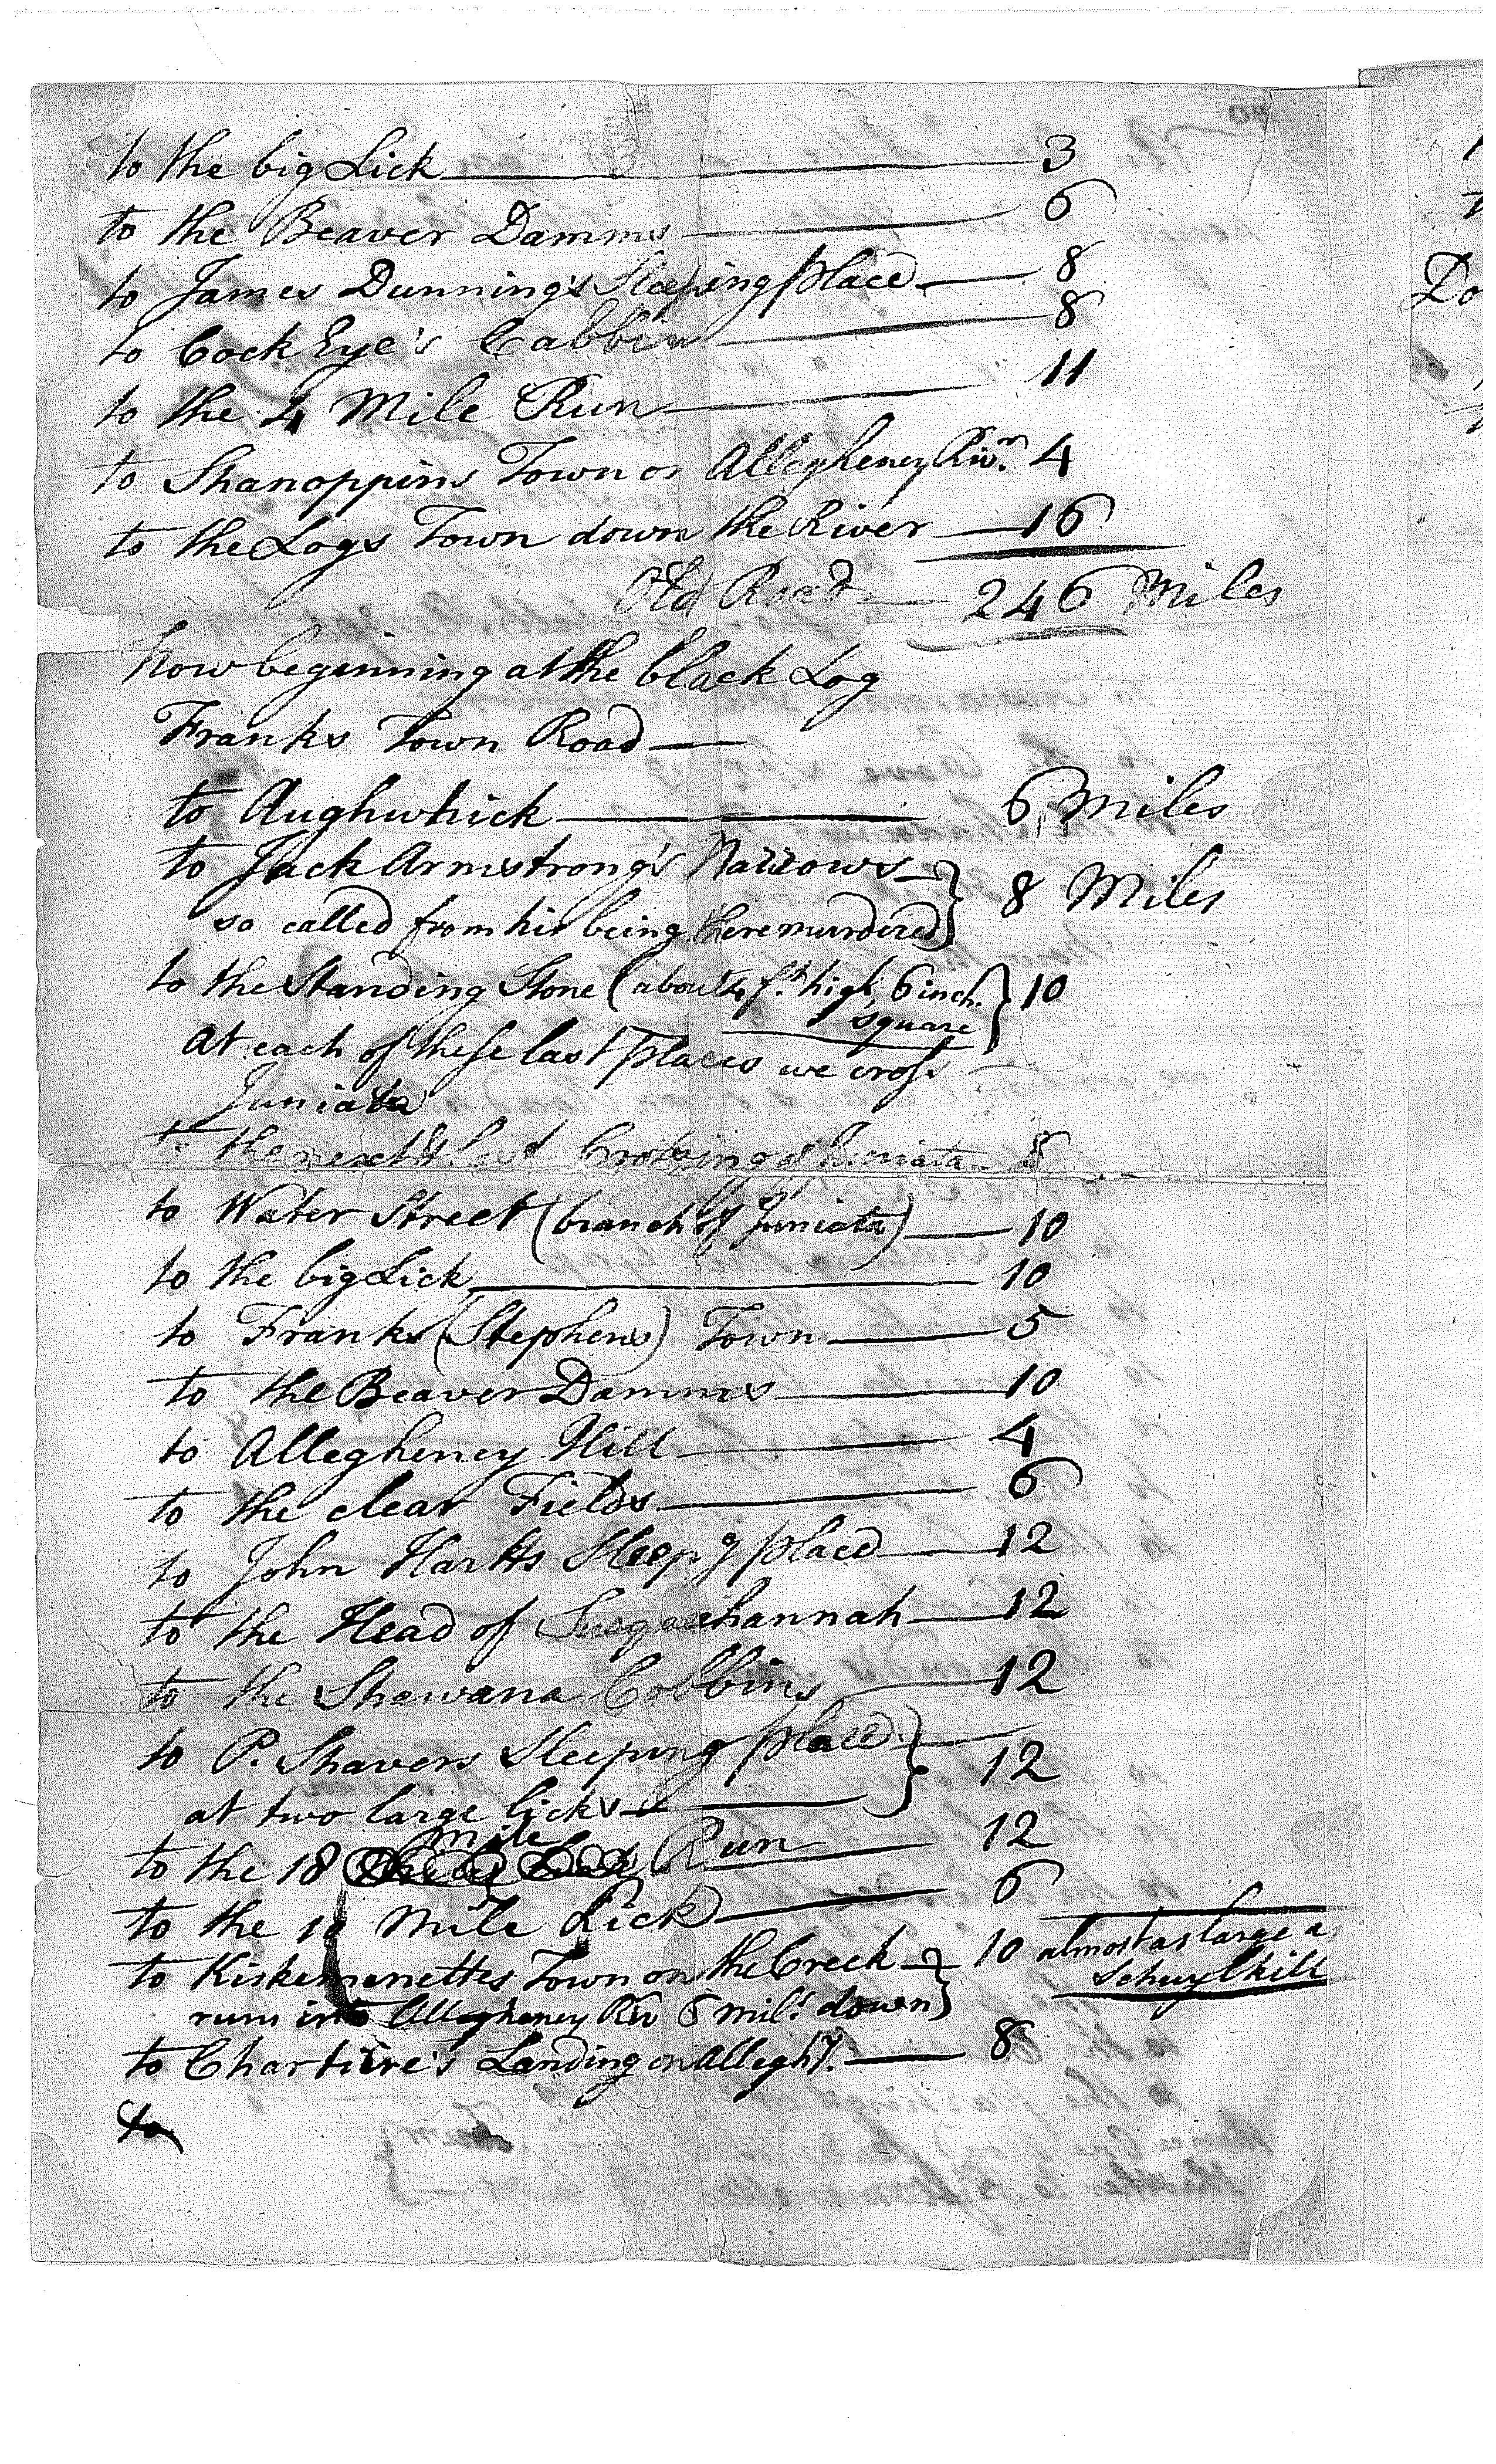 to the big Lick 3
to the Beaver Damms 6
to James Dunning's Sleeping place 8
to Cock Eye's Cabbin 8
to the 4 Mile Run 11
to Shanoppins Town on Allegheney Rivr. 4
to the Logs Town down the River 16
Old Road 246 Miles
Now beginning at the black Log
Franks Town Road
to Aughwhick 6 Miles
to Jack Armstrong's Narrows 8 Miles
so called from his being there murdered
to the Standing Stone (about 14 ft. high, 6 inch. 10
square
At each of these last places we cross
Juniata
to the next & last Crossing of Juniata 8
to Water Street (branch of Juniata) 10
to the big Lick 10
to Franks (Stephens) Town 5
to the Beaver Damms 10
to Allegheney Hill 4
to the clear Fields 6
to John Harts Sleepg place 12
to the Head of Susquehannah 12
to the Shawana Cabbins 12
to P. Shavers Sleeping place 12
at two large licks
mile
to the 18 Run 12
to the 10 Mile Lick 6
to Kiskemenettes Town on the Creek 10 almost as large a
Schuylkill
runs into Allegheney Riv 6 mils. down
to Chartiere's Landing on Alleghy. 8
to